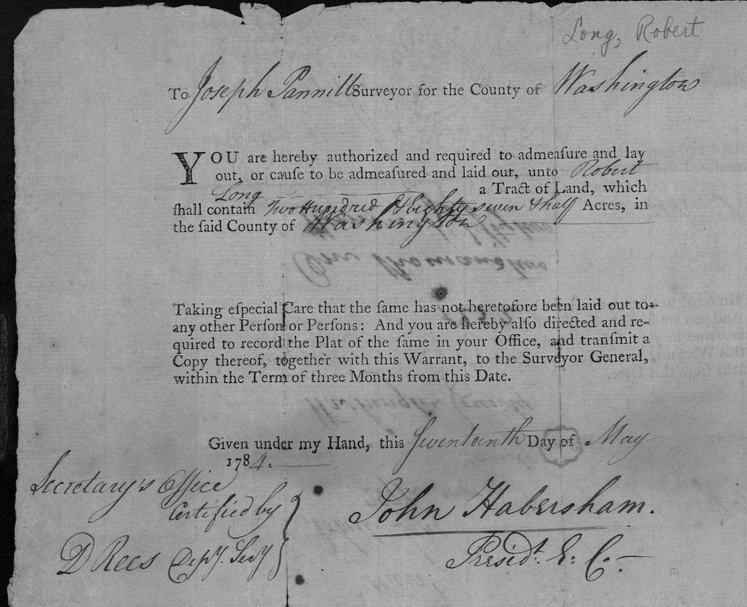 Long, Robert
To Joseph Pannill Surveyor for the County of Washington
YOU are hereby authorized and required to admeaſure and lay
out, or cauſe to be admeaſured and laid out, unto Robert
Long a Tract of Land, which
ſhall contain Two Hundred & Eighty seven & half Acres, in
the ſaid County of Washington
Taking eſpecial Care that the ſame has not heretofore been laid out to
any other Perſon or Perſons: And you are hereby alſo directed and re-
quired to record the Plat of the ſame in your Office, and tranſmit a
Copy thereof, together with this Warrant, to the Surveyor General,
within the Term of three Months from this Date.
Given under my Hand, this Seventeenth Day of May
1784.
Secretary's Office
Certified by
D Rees Depy. Secy
John Habersham.
Presidt. E. C.